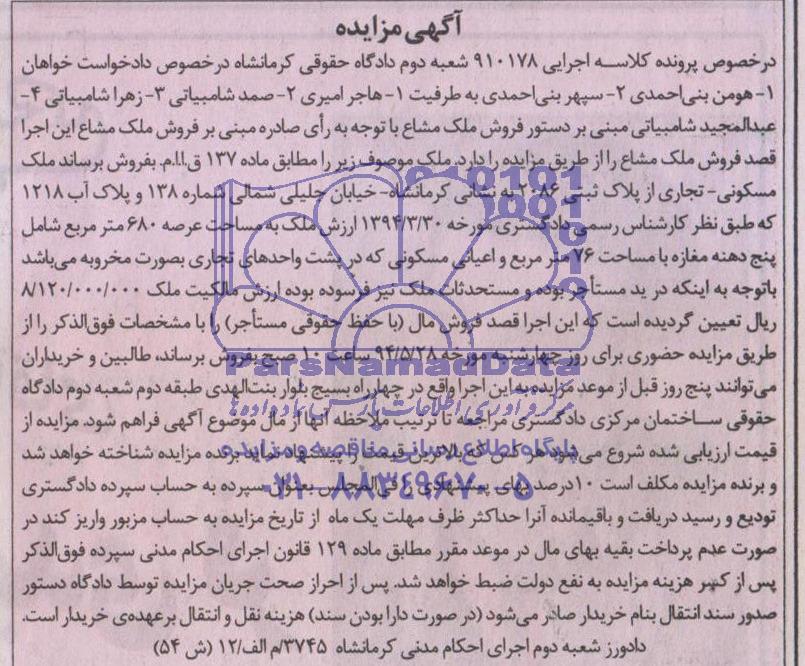 آگهی مزایده
درخصوص پرونده کلاسه اجرایی ۹۱۰۱۷۸ شعبه دوم دادگاه حقوقی کرمانشاه درخصوص دادخواست خواهان
۱- هومن بنی‌احمدی ۲- سپهر بنی‌احمدی به طرفیت ۱- هاجر امیری ۲- صمد شامبیاتی ۳- زهرا شامبیاتی ۴-
عبدالمجید شامبیاتی مبنی بر دستور فروش ملک مشاع با توجه به رأی صادره مبنی بر فروش ملک مشاع این اجرا
قصد فروش ملک مشاع را از طریق مزایده را دارد. ملک موصوف زیر را مطابق ماده ۱۳۷ ق.ا.ا.م. بفروش برساند ملک
مسکونی- تجاری از پلاک ثبتی ۲۰۸۶ به نشانی کرمانشاه- خیابان جلیلی شمالی شماره ۱۳۸ و پلاک آب ۱۲۱۸
که طبق نظر کارشناس رسمی دادگستری مورخه ۱۳۹۴/۳/۳۰ ارزش ملک به مساحت عرصه ۶۸۰ متر مربع شامل
پنج دهنه مغازه با مساحت ۷۶ متر مربع و اعیانی مسکونی که در پشت واحدهای تجاری بصورت مخروبه می‌باشد
باتوجه به اینکه در ید مستأجر بوده و مستحدثات ملک نیز فرسوده بوده ارزش مالکیت ملک ۸/۱۲۰/۰۰۰/۰۰۰
ریال تعیین گردیده است که این اجرا قصد فروش مال (با حفظ حقوقی مستأجر) را با مشخصات فوق‌الذکر را از
طریق مزایده حضوری برای روز چهارشنبه مورخه ۹۴/۵/۲۸ ساعت ۱۰ صبح بفروش برساند، طالبین و خریداران
می‌توانند پنج روز قبل از موعد مزایده به این اجرا واقع در چهارراه بسیج بلوار بنت‌الهدی طبقه دوم شعبه دوم دادگاه
حقوقی ساختمان مرکزی دادگستری مراجعه تا ترتیب ملاحظه آنها از مال موضوع آگهی فراهم شود. مزایده از
قیمت ارزیابی شده شروع می‌شود هر کس که بالاترین قیمت را پیشنهاد نماید برنده مزایده شناخته خواهد شد
و برنده مزایده مکلف است ۱۰درصد بهای پیشنهادی را فی‌المجلس بعنوان سپرده به حساب سپرده دادگستری
تودیع و رسید دریافت و باقیمانده آنرا حداکثر ظرف مهلت یک ماه از تاریخ مزایده به حساب مزبور واریز کند در
صورت عدم پرداخت بقیه بهای مال در موعد مقرر مطابق ماده ۱۲۹ قانون اجرای احکام مدنی سپرده فوق‌الذکر
پس از کسر هزینه مزایده به نفع دولت ضبط خواهد شد. پس از احراز صحت جریان مزایده توسط دادگاه دستور
صدور سند انتقال بنام خریدار صادر می‌شود (در صورت دارا بودن سند) هزینه نقل و انتقال برعهده‌ی خریدار است.
دادورز شعبه دوم اجرای احکام مدنی کرمانشاه ۳۷۴۵/م الف/۱۲ (ش ۵۴)
ParsNamadData
مرکز فرآوری اطلاعات پارس نماد داده‌ها
پایگاه اطلاع رسانی مناقصه و مزایده
۰۲۱-۸۸۳۴۹۶۷۰-۵